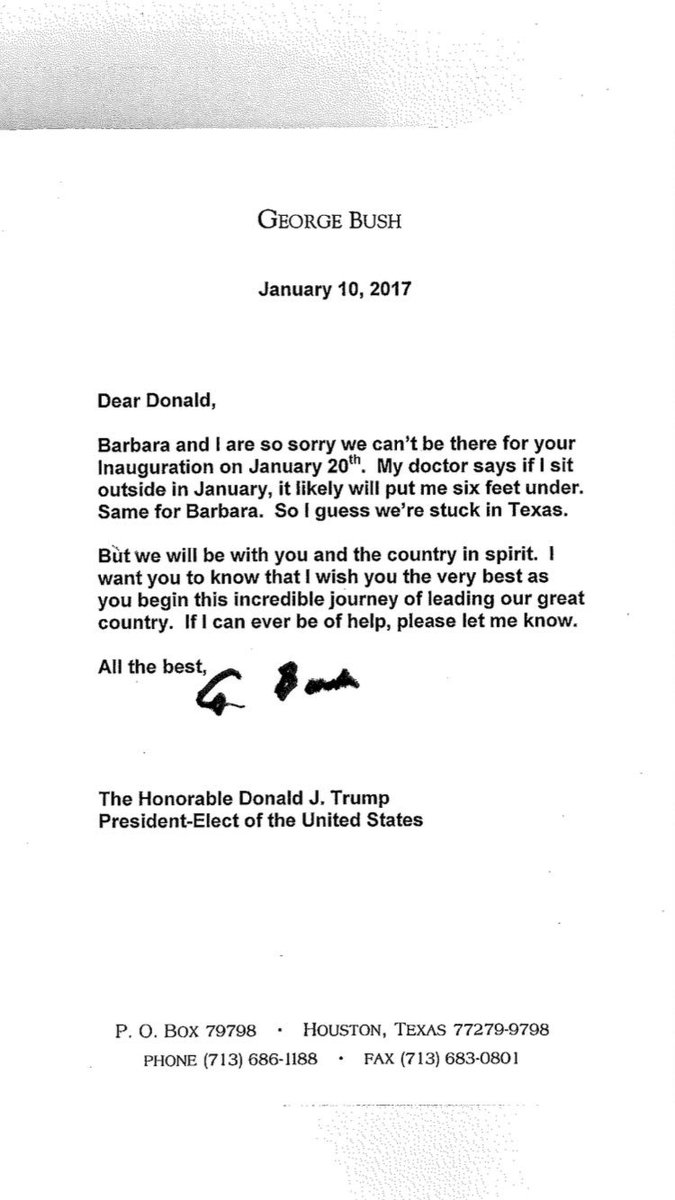 GEORGE BUSH
January 10, 2017
Dear Donald,
Barbara and I are so sorry we can't be there for your
Inauguration on January 20th. My doctor says if I sit
outside in January, it likely will put me six feet under.
Same for Barbara. So I guess we're stuck in Texas.
But we will be with you and the country in spirit. I
want you to know that I wish you the very best as
you begin this incredible journey of leading our great
country. If I can ever be of help, please let me know.
All the best,
G Bush
The Honorable Donald J. Trump
President-Elect of the United States
P. O. BOX 79798 · HOUSTON, TEXAS 77279-9798
PHONE (713) 686-1188 · FAX (713) 683-0801